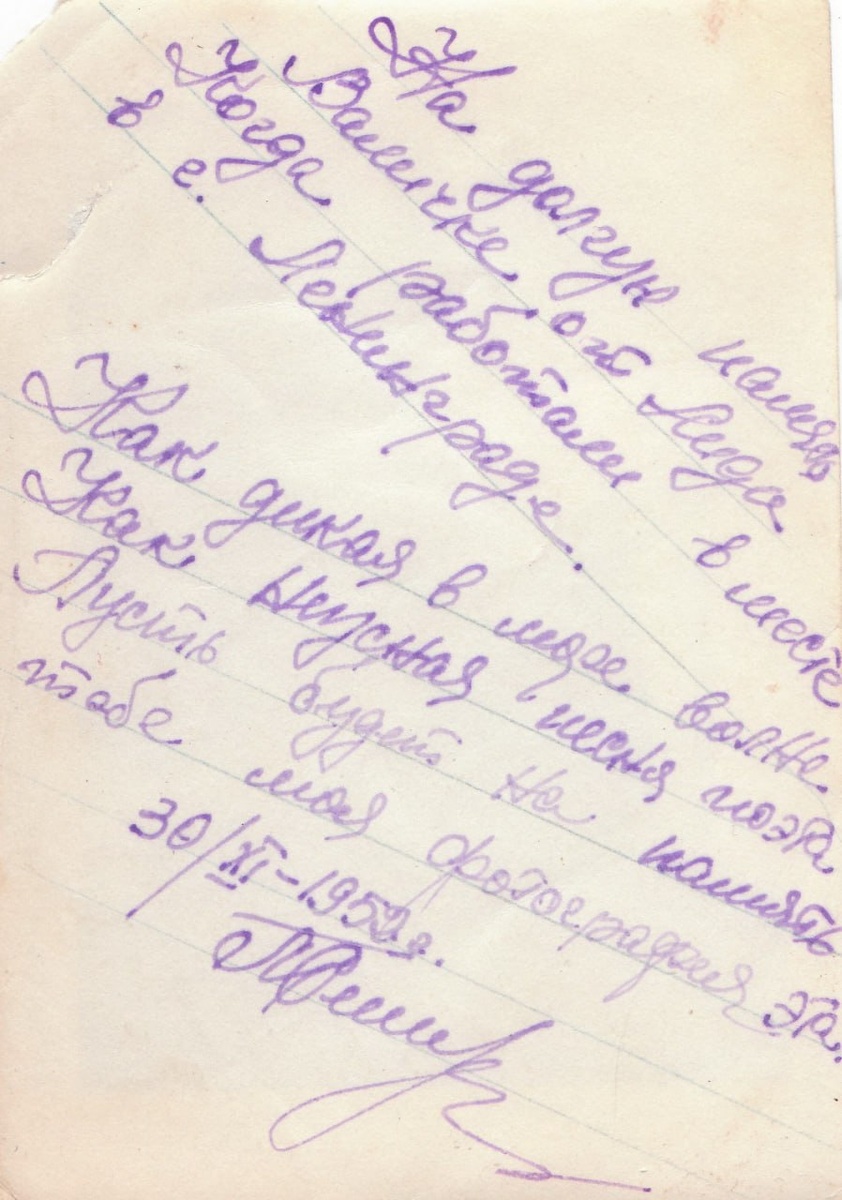 На долгую память
Валичке от Лида
Когда работали в месте
в г. Ленинграде.
Как дикая в море волна
Как песня поэта
Пусть будет на память
тобе моя фотография эта.
30/XI-1952г.